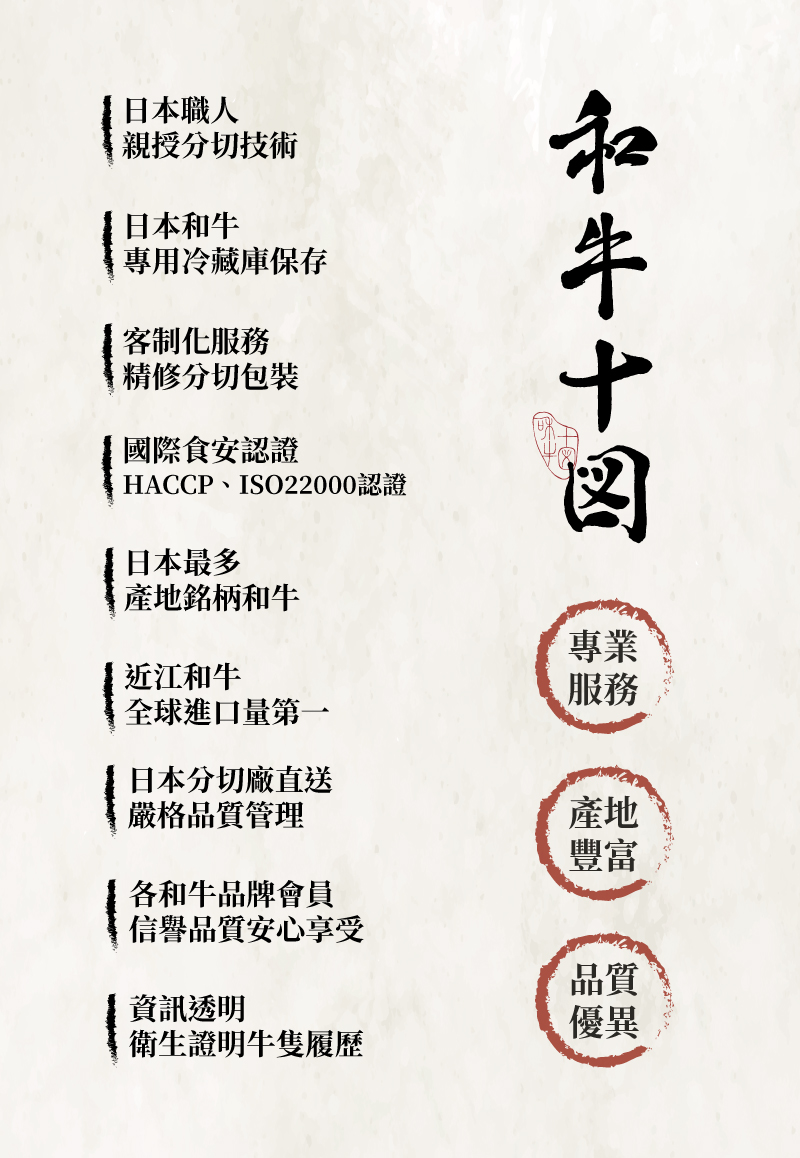 和牛十図
和牛
十図
日本職人
親授分切技術
日本和牛
專用冷藏庫保存
客制化服務
精修分切包裝
國際食安認證
HACCP、ISO22000認證
日本最多
產地銘柄和牛
近江和牛
全球進口量第一
日本分切廠直送
嚴格品質管理
各和牛品牌會員
信譽品質安心享受
資訊透明
衛生證明牛隻履歷
專業
服務
產地
豐富
品質
優異